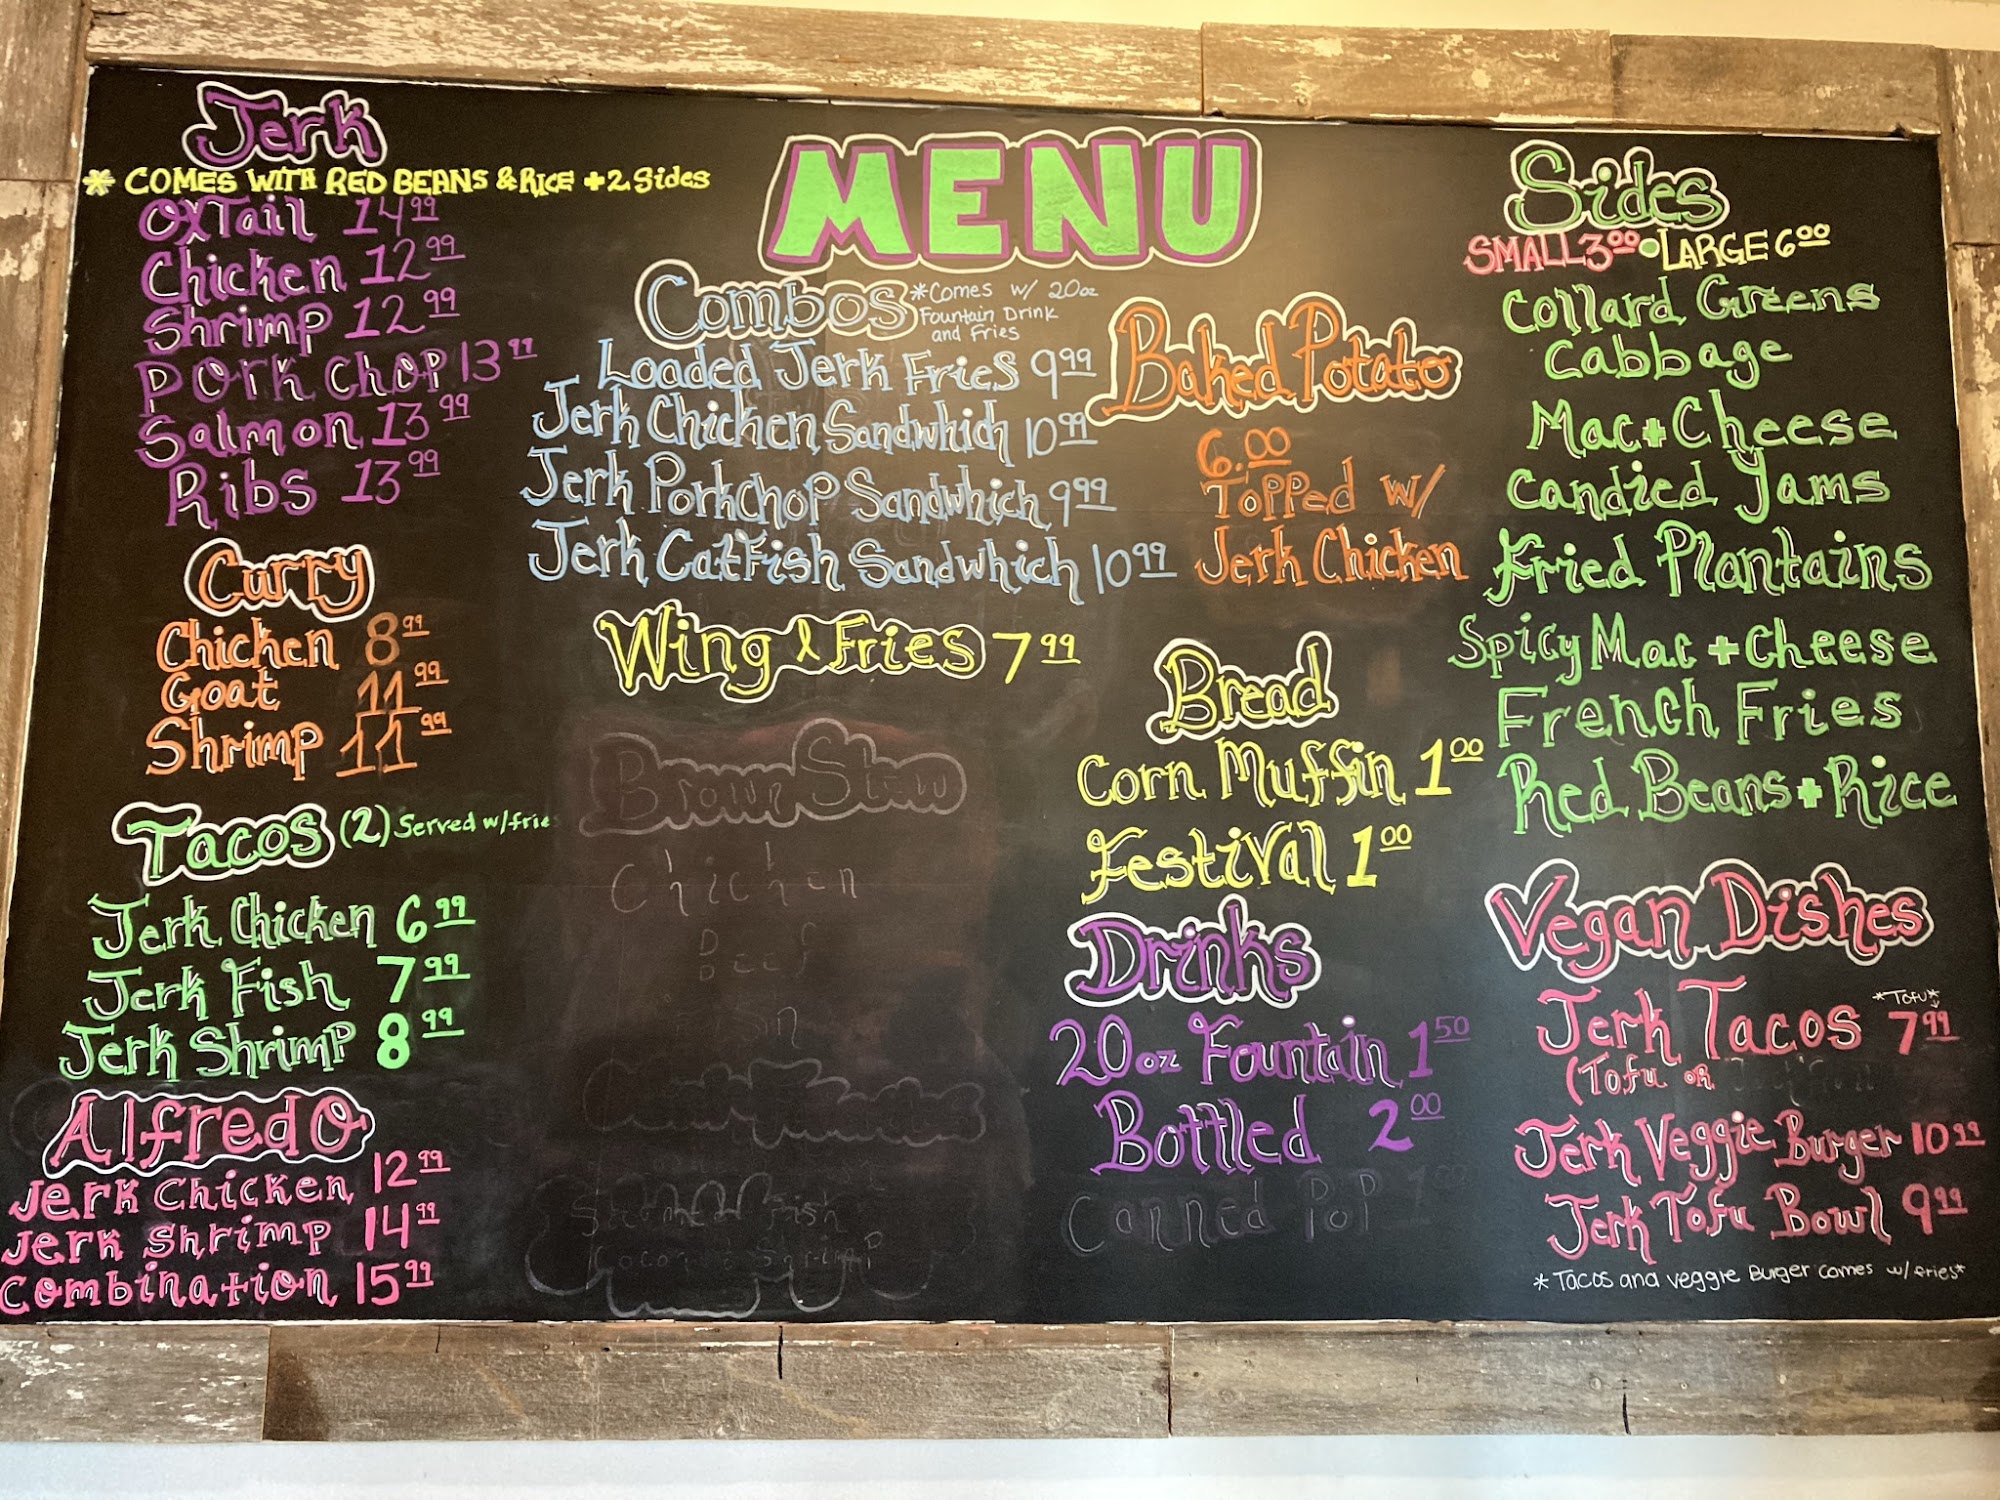 MENU
Jerk
* COMES WITH RED BEANS & RICE + 2 Sides
OxTail 14.99
Chicken 12.99
Shrimp 12.99
Pork Chop 13.99
Salmon 13.99
Ribs 13.99
Curry
Chicken 8.99
Goat 11.99
Shrimp 11.99
Tacos (2) Served w/frie
Jerk Chicken 6.99
Jerk Fish 7.99
Jerk Shrimp 8.99
Alfredo
Jerk Chicken 12.99
Jerk Shrimp 14.99
Combination 15.99
Combos *Comes w/ 20oz
Fountain Drink
and Fries
Loaded Jerk Fries 9.99
Jerk Chicken Sandwhich 10.99
Jerk Porkchop Sandwhich 9.99
Jerk CatFish Sandwhich 10.99
Wing & Fries 7.99
Brown Stew
Chicken
Beef
Canned Pop
Baked Potato
6.00
Topped w/
Jerk Chicken
Bread
Corn Muffin 1.00
Festival 1.00
Drinks
20oz Fountain 1.50
Bottled 2.00
Sides
SMALL 3.00 • LARGE 6.00
Collard Greens
Cabbage
Mac + Cheese
Candied Yams
Fried Plantains
Spicy Mac + Cheese
French Fries
Red Beans + Rice
Vegan Dishes
*Tofu*
Jerk Tacos 7.99
(Tofu or
Jerk Veggie Burger 10.99
Jerk Tofu Bowl 9.99
*Tacos and veggie Burger comes w/ fries*